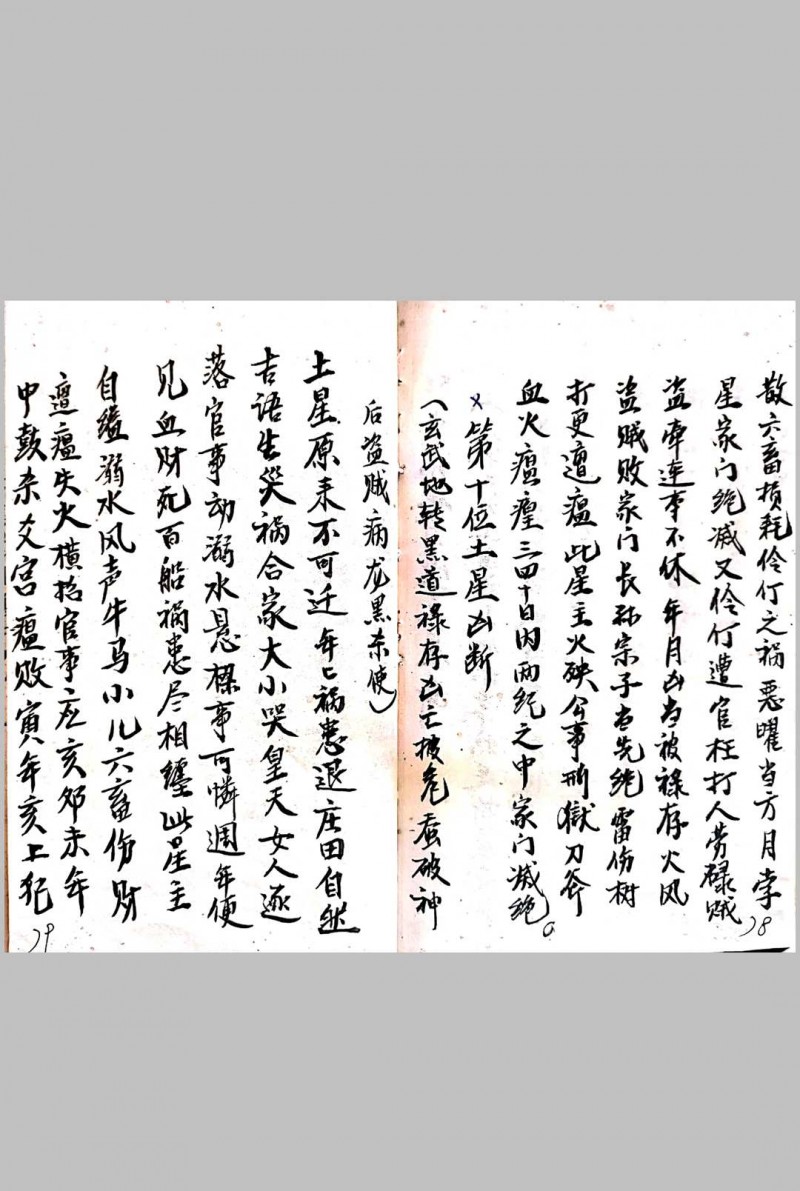 散六畜损耗伶仃之祸恶曜当方月孛
星家门绝减又伶仃遭官枉打人劳碌贼
盗牵连事不休年月凶当被禄存火风
盗贼败家门长孙宗子当先绝雷伤树
打更遭瘟此星主火殃公事刑獄刀斧
血火瘟瘴三四十日内两纪之中家门减绝。
x第十位土星凶断
(玄武地转黑道禄存凶亡披危蚕破神
18
后盗贼病龙黑杀使)
土星原来不可迁年匕祸患退庄田自然
吉语生哭祸合家大小哭皇天女人逐
落官事动溺水悬樑事可憐週年便
见血财死百船祸患尽相缠此星主
自缢溺水风声牛马小儿六畜伤财
遭瘟失火横招官事应亥卯未年
中鼓杀爻宫瘟败寅年亥上犯
19